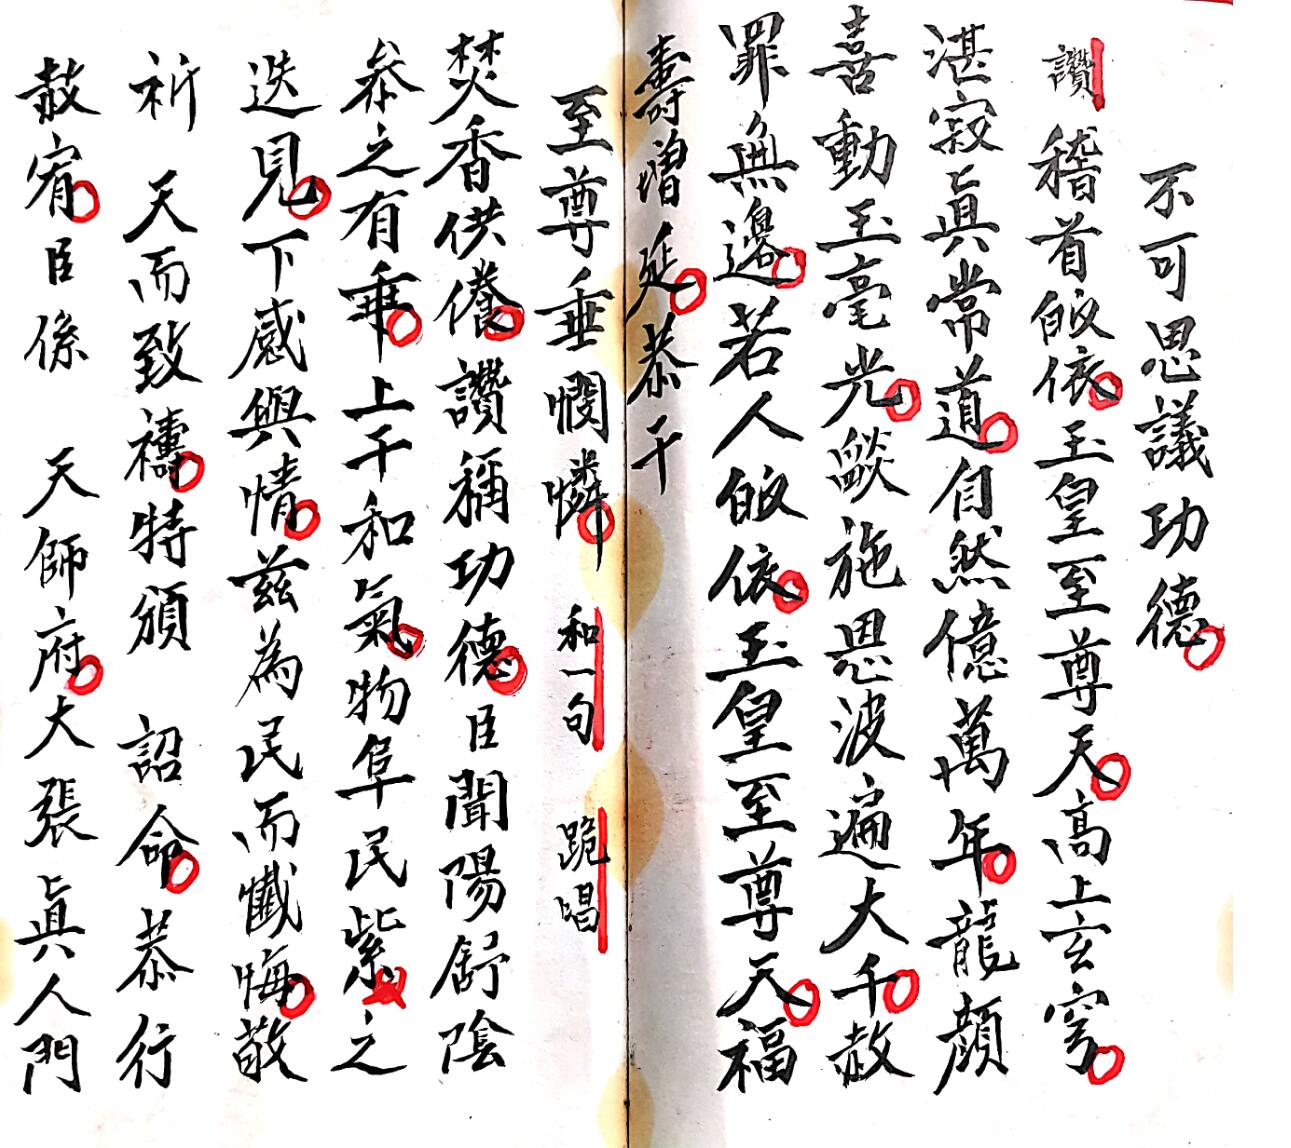 不可思議功德
讚 稽首皈依玉皇至尊天高上玄穹
湛寂真常道自然億萬年龍顔
喜動玉毫光燄施恩波遍大千赦
罪無邊若人皈依玉皇至尊天福
壽增延恭干
至尊垂憫憐 和一句 跪唱
焚香供養讚稱功德臣聞陽舒陰
叅之有乗上千和氣物阜民紫之
迭見下感輿情茲為民而懺悔敬
祈 天而致禱特頒 詔命恭行
赦宥臣係 天師府大張真人門